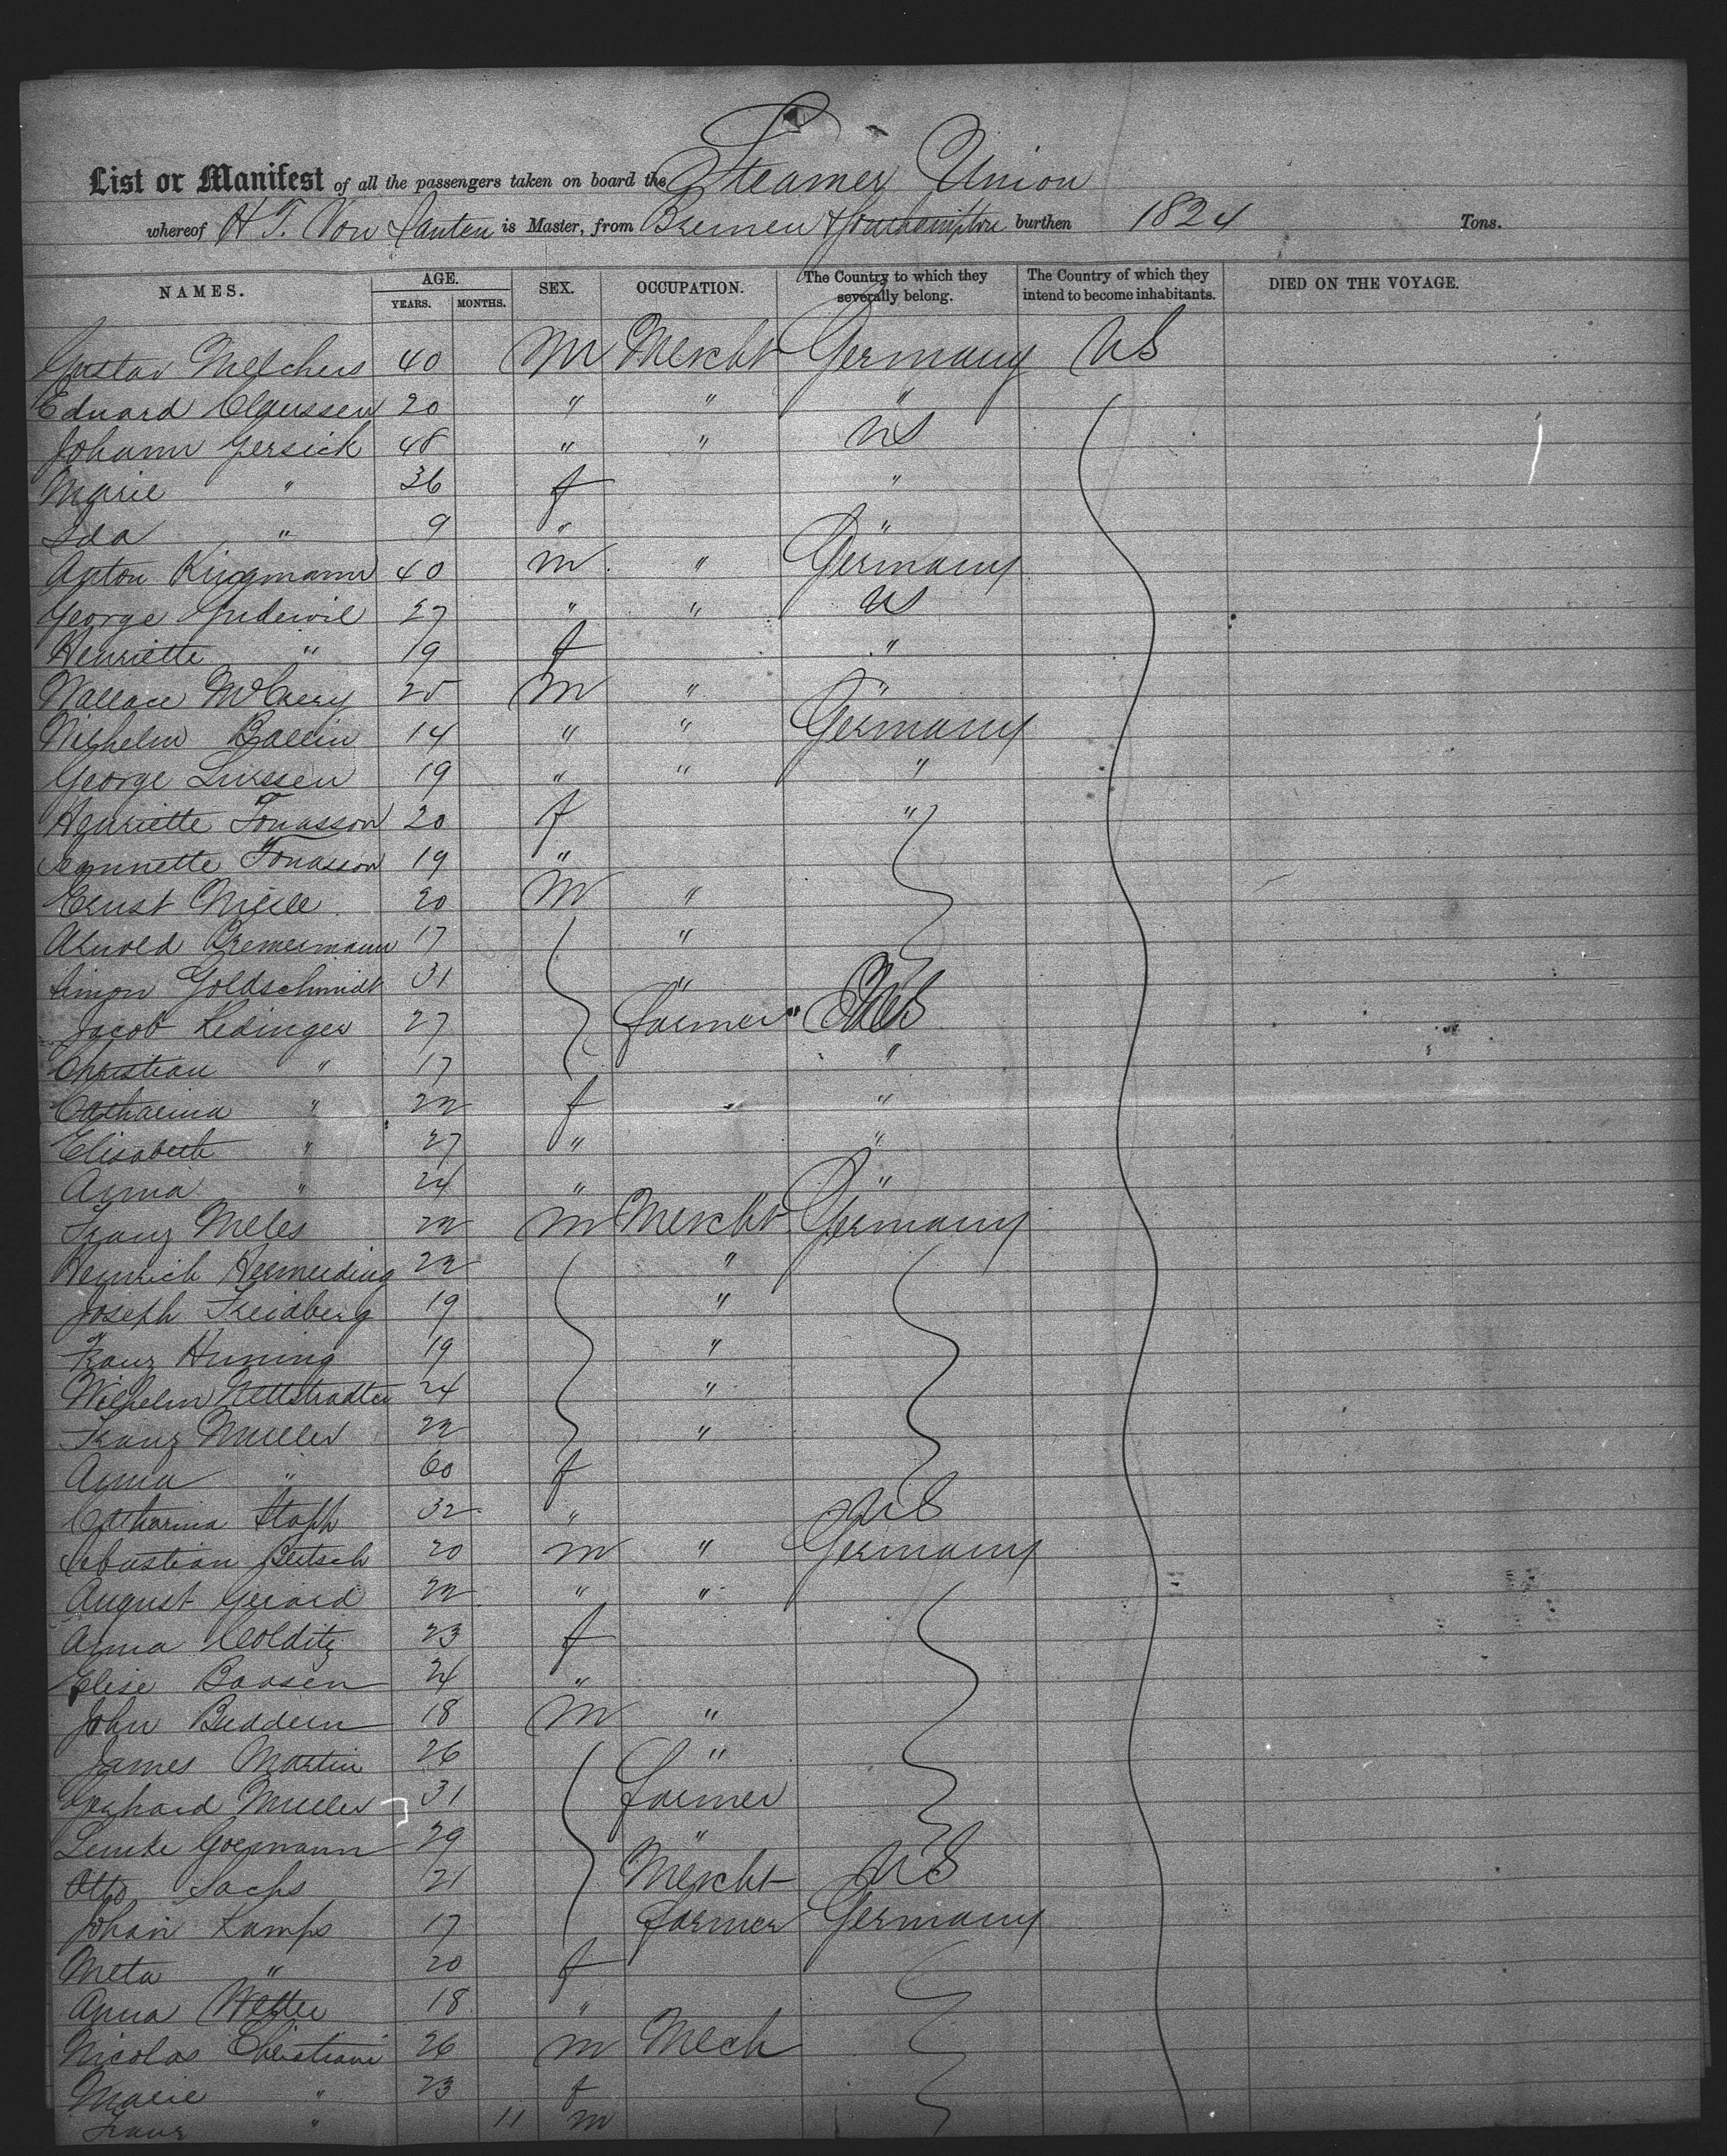 List or Manifest of all the passengers taken on board the Steamer Union
whereof H. J. Von Santen is Master, from Bremen & Southampton burthen 1824 Tons.
NAMES. AGE. YEARS. MONTHS. SEX. OCCUPATION. The Country to which they severally belong. The Country of which they intend to become inhabitants. DIED ON THE VOYAGE.
Gustav Melchers 40 M Mercht Germany US
Eduard Claussen 20 " " "
Johann Gersick 48 " " US
Marie " 36 f "
Ida " 9 " "
Anton Kingmann 40 m " Germany
George Gudewil 27 " " US
Henriette " 19 f "
Wallace 25 M " "
Wilhelm Ballin 14 " " Germany
George Lurssen 19 " " "
Henriette Jonasson 20 f "
Jeannette Jonasson 19 "
Ernst 20 M "
Arnold Bremermann 17 "
Simon Goldschmidt 31 "
Jacob Redinger 27 farmer US
Christian " 17 "
Catharina " 22 f "
Elisabeth " 27 " "
Anna " 24 " "
Franz Meles 22 m Mercht Germany
Heinrich Hermerding 22 "
Joseph Freidberg 19 "
Franz Huning 19 "
Wilhelm Nettstradter 24 "
Franz Mueller 22 "
Anna " 60 f
Catharina Staph 32 " US
Sebastian Bertsch 20 m " Germany
August Gerard 22 " "
Anna Colditz 23 f
Elise Boosen 24 "
John Buddein 18 M "
James Martin 26 "
Gerhard Mueller 31 farmer
Lemke Goemann 29 "
Otto Sachs 21 Mercht US
Johan Kamps 17 farmer Germany
Meta " 20 f
Anna Wetter 18 "
Nicolas Christiani 26 m Mech
Marie " 23 f
Franz " 11 m